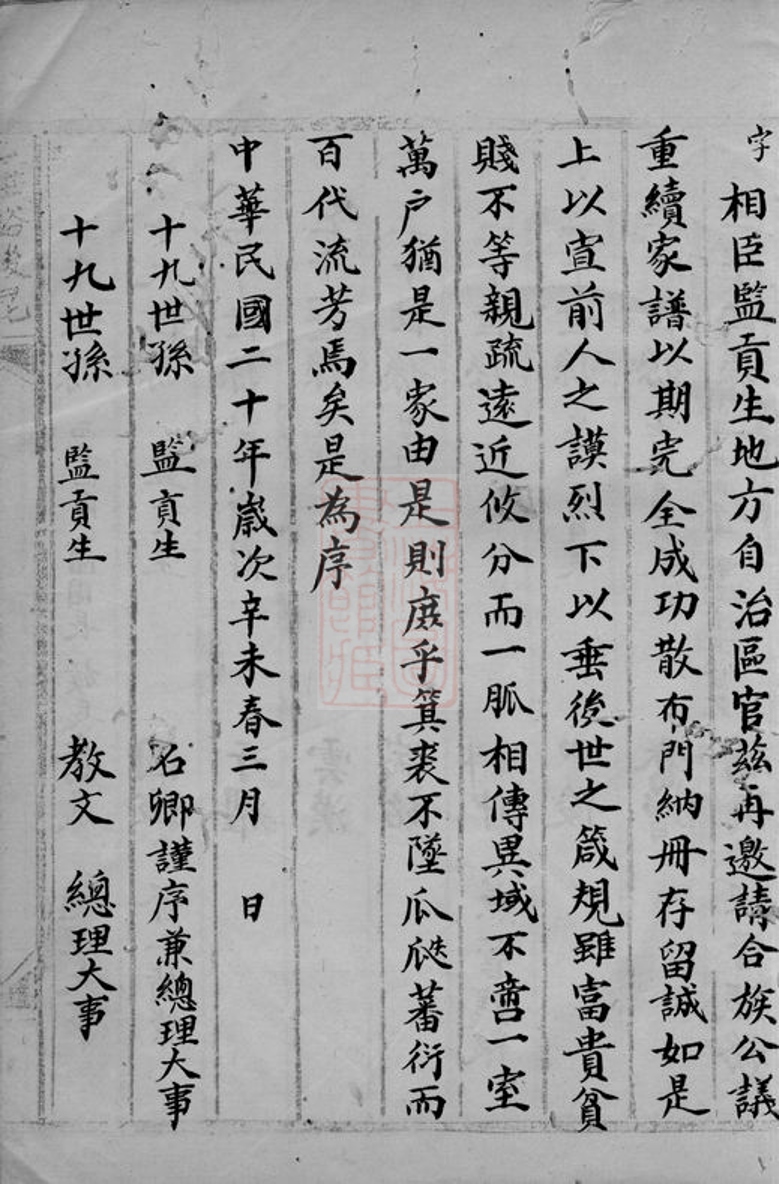 字相臣監貢生地方自治區官兹再邀請合族公議
重續家譜以期完全成功散布門納冊存留誠如是
上以宣前人之謨烈下以垂後世之箴規雖富貴貧
賤不等親疏遠近攸分而一脈相傳異域不啻一室
萬户猶是一家由是則庶乎箕裘不墜瓜瓞蕃衍而
百代流芳焉矣是為序
中華民國二十年歲次辛未春三月 日
十九世孫 監貢生 名卿謹序兼總理大事
十九世孫 監貢生 教文 總理大事